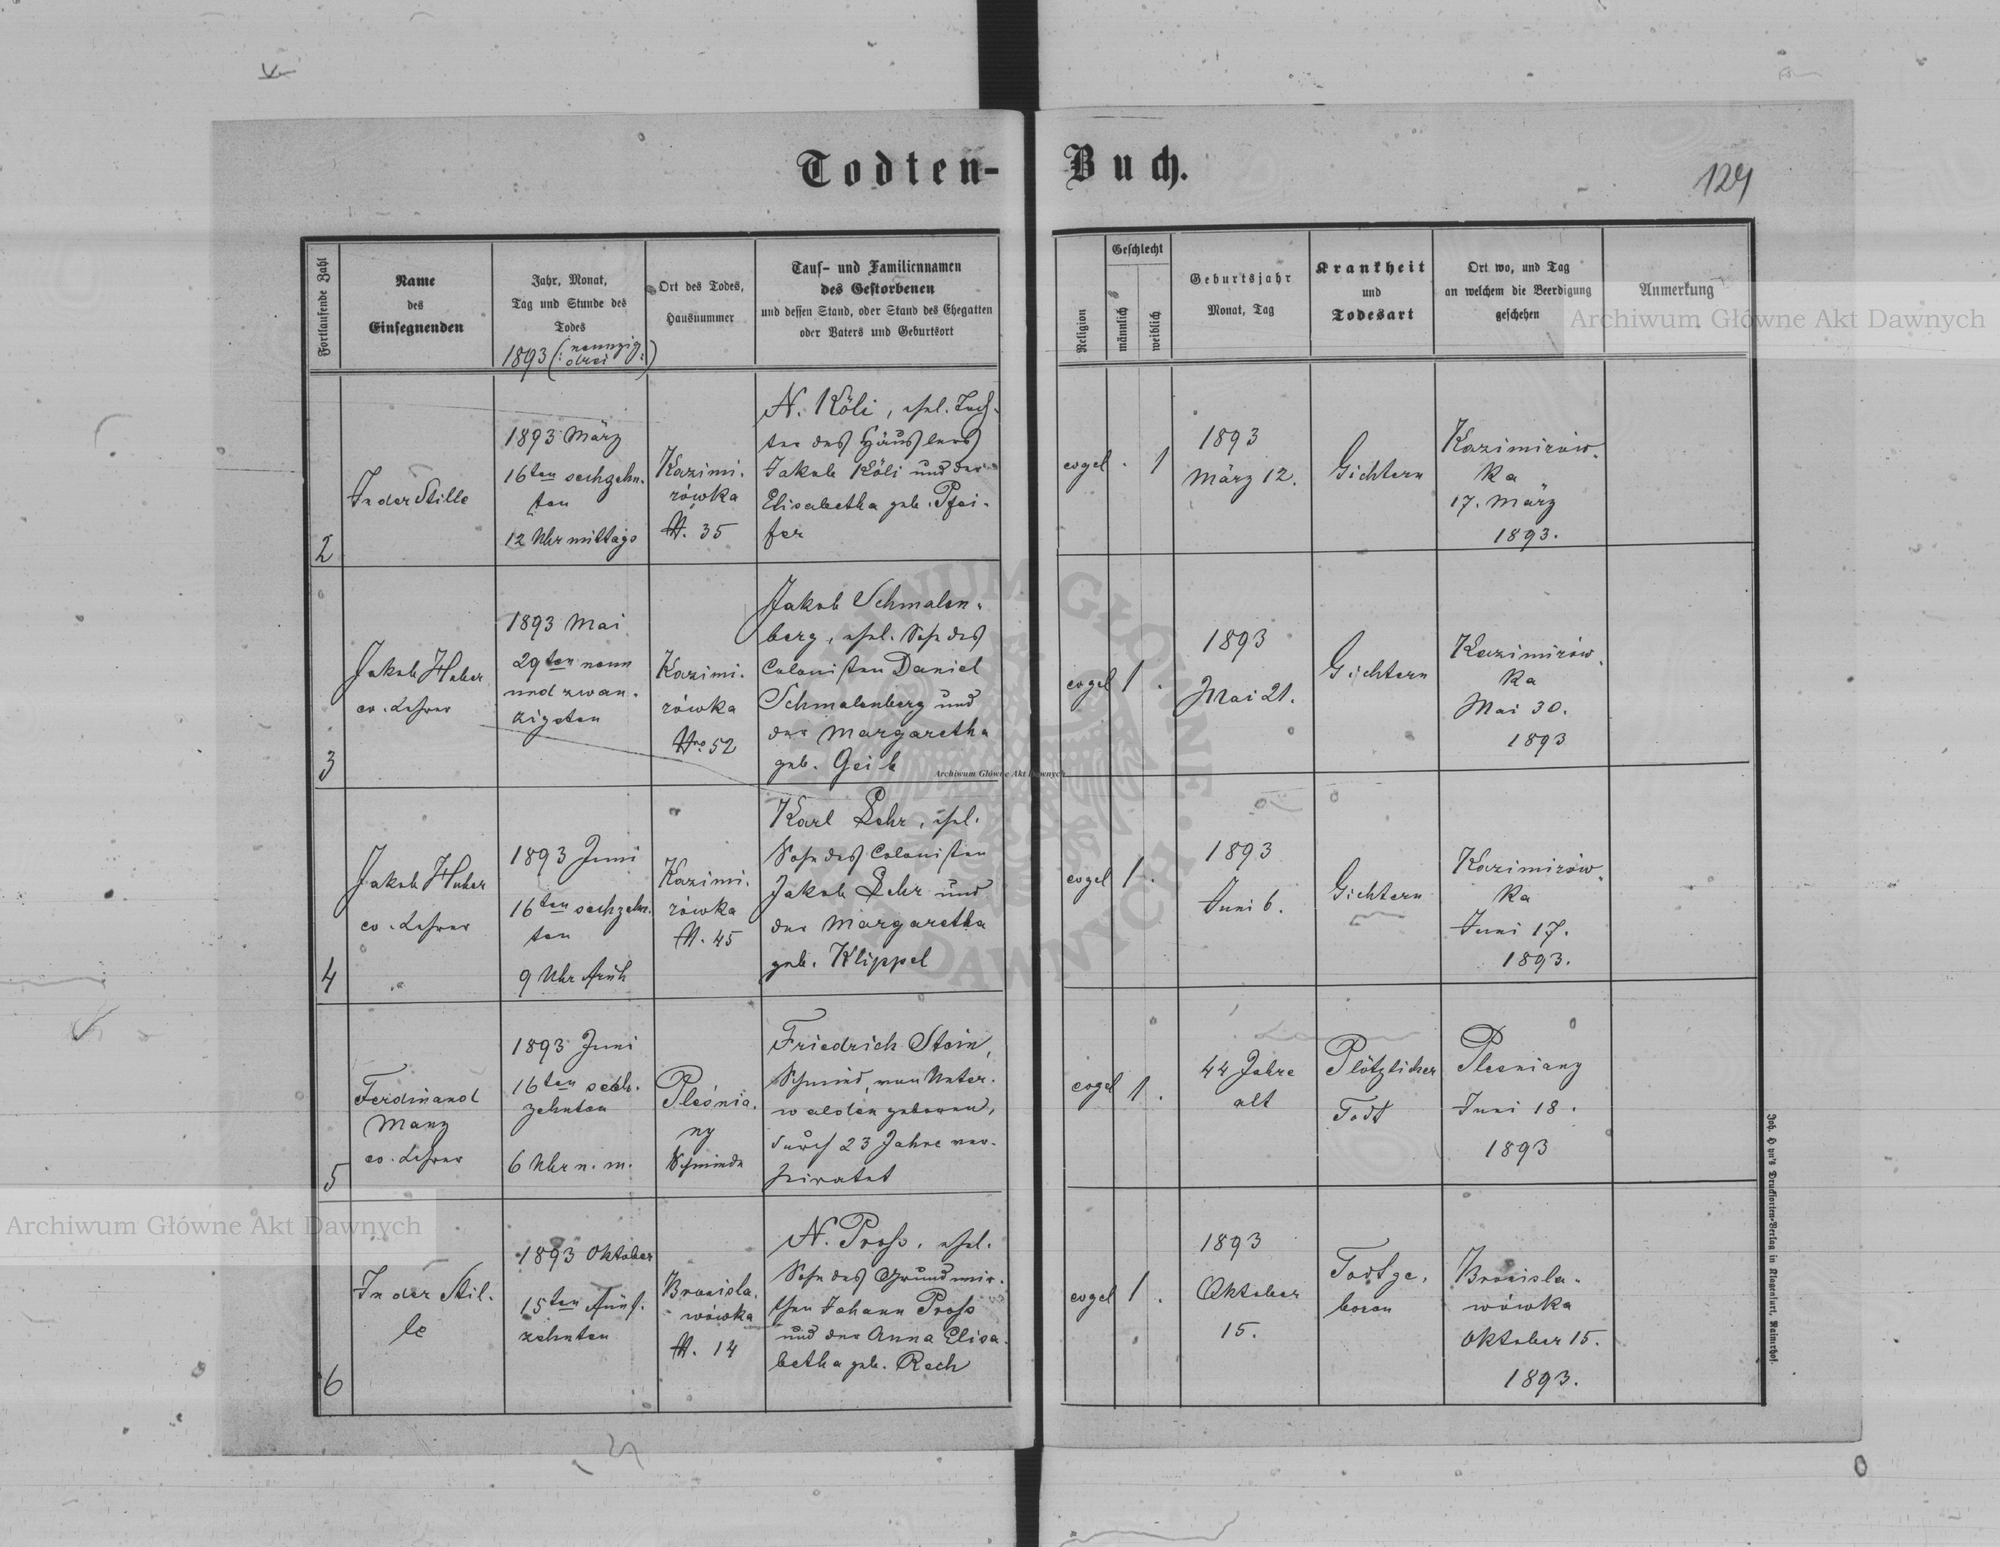 Todten-Buch.
124
Fortlaufende Zahl
Name
des
Einsegnenden
Jahr, Monat,
Tag und Stunde des
Todes
1893 (: neunzig
drei :)
Ort des Todes,
Hausnummer
Tauf- und Familiennamen
des Gestorbenen
und dessen Stand, oder Stand des Ehegatten
oder Vaters und Geburtsort
Religion
Geschlecht
männlich
weiblich
Geburtsjahr
Monat, Tag
Krankheit
und
Todesart
Ort wo, und Tag
an welchem die Beerdigung
geschehen
Anmerkung
2
In der Stille
1893 März
16ten sechzehn-
ten
12 Uhr mittags
Kazimi-
rówka
N. 35
N. Köli, ehel. Toch-
ter des Häuslers
Jakob Köli und der
Elisabetha geb. Pfei-
fer
evgel
. 1
1893
März 12.
Gichtern
Kazimirów-
ka
17. März
1893.
3
Jakob Huber
ev. Lehrer
1893 Mai
29ten neun
und zwan-
zigsten
Kazimi-
rówka
Nro 52
Jakob Schmalen-
berg, ehel. Sohn des
Colonisten Daniel
Schmalenberg und
der Margaretha
geb. Geib
evgel
1 .
1893
Mai 21.
Gichtern
Kazimirów-
ka
Mai 30.
1893
4
Jakob Huber
ev. Lehrer
1893 Juni
16ten sechzehn-
ten
9 Uhr früh
Kazimi-
rówka
N. 45
Karl Lehr, ehel.
Sohn des Colonisten
Jakob Lehr und
der Margaretha
geb. Klippel
evgel
1 .
1893
Juni 6.
Gichtern
Kazimirów-
ka
Juni 17.
1893.
5
Ferdinand
Manz
ev. Lehrer
1893 Juni
16ten sech-
zehnten
6 Uhr n. m.
Pleśnia-
ny
Schmiede
Friedrich Stein,
Schmied, von Unter-
walden geboren,
durch 23 Jahre ver-
heiratet
evgel
1 .
44 Jahre
alt
Plötzlicher
Todt
Plesniany
Juni 18.
1893
6
In der Stil-
le
1893 Oktober
15ten fünf-
zehnten
Bronisla-
wówka
N. 14
N. Pross, ehel.
Sohn des Grundwir-
then Johann Pross
und der Anna Elisa-
betha geb. Rech
evgel
1 .
1893
Oktober
15.
Todtge-
boren
Bronisla-
wówka
Oktober 15.
1893.
Joh. Hyn's Drucksorten-Verlag in Klagenfurt, Rainerhof.
Archiwum Główne Akt Dawnych
Archiwum Główne Akt Dawnych
Archiwum Główne Akt Dawnych
ARCHIWUM GŁÓWNE AKT DAWNYCH